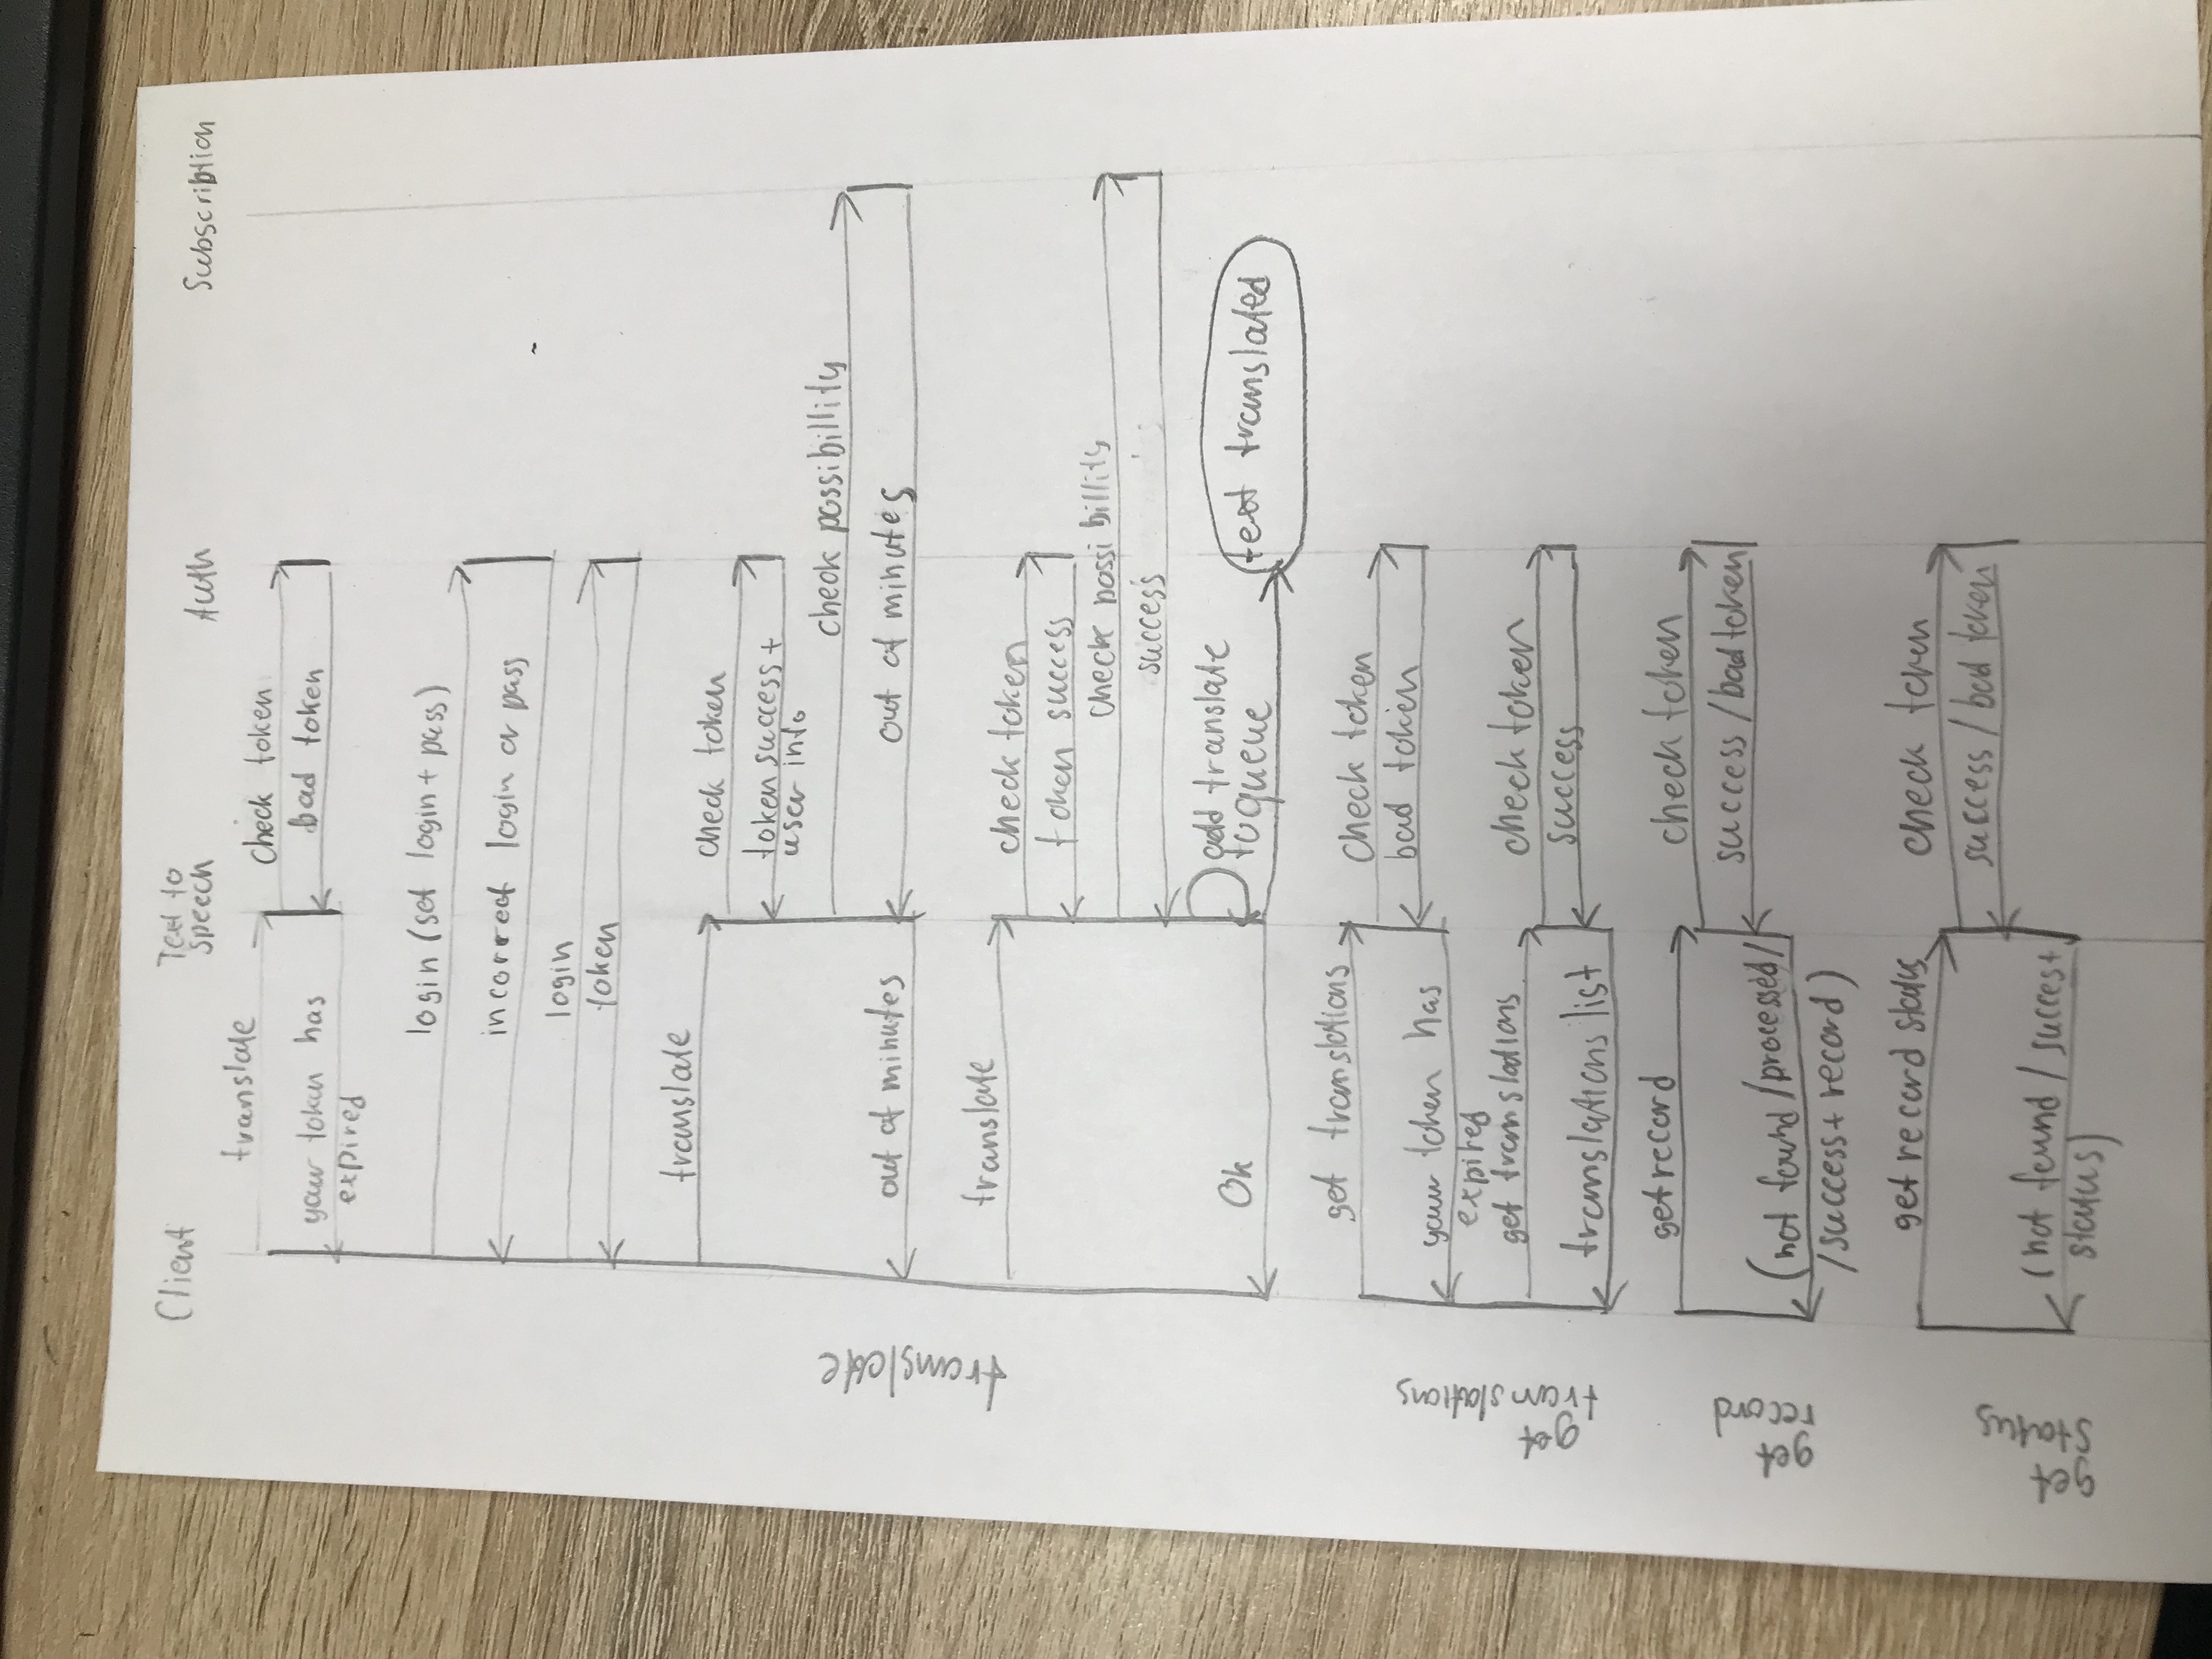 Client
Text to
Speech
Auth
Subscribtion
translate
check token
your token has
expired
bad token
login (set login + pass)
incorrect login or pass
login
token
translate
check token
token success +
user info
check possibillity
out of minutes
out of minutes
translate
translate
check token
token success
check possibillity
success
add translate
to queue
Ok
text translated
get translations
check token
bad token
your token has
expired
get
translations
get translations
check token
success
translations list
get record
check token
success / bad token
get
record
(not found / processed /
/ success + record)
get record status
check token
success / bad token
get
status
(not found / succes +
status)